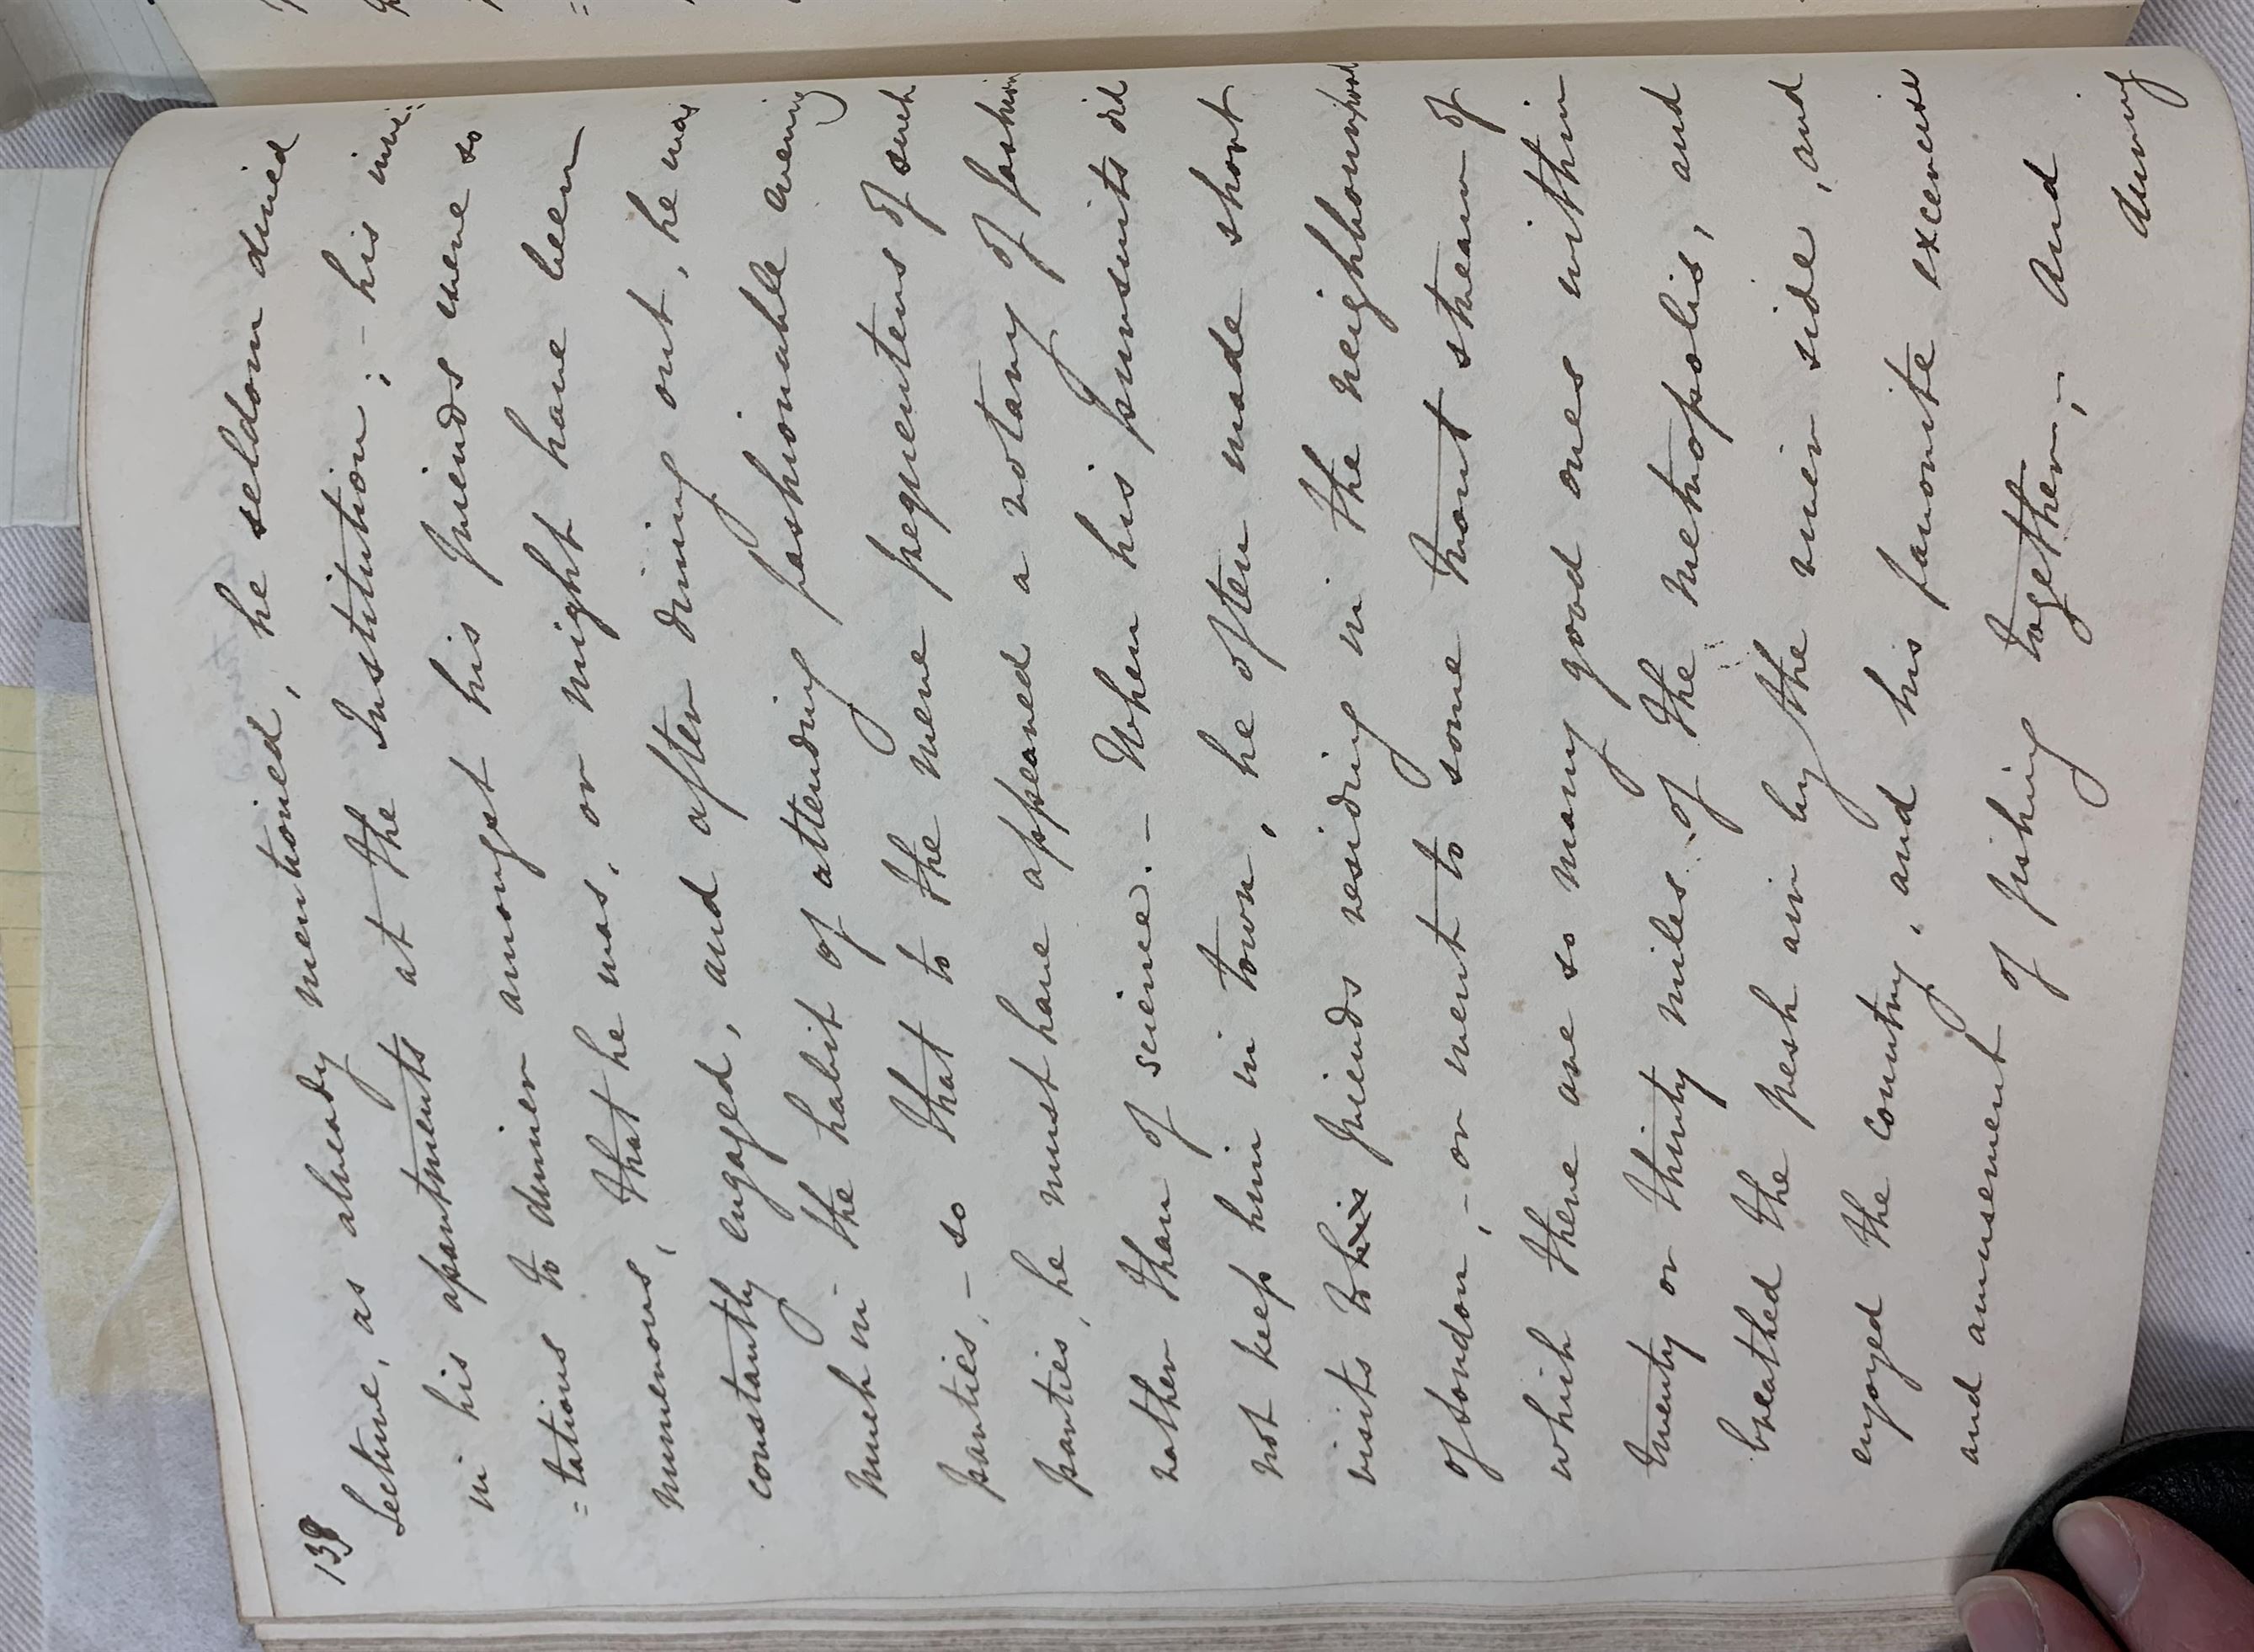 138
Lecture, as already mentioned, he seldom dined
in his apartments at the Institution; – his invi=
=tations to dinner amongst his friends were so
numerous, that he was, or might have been
constantly engaged, and after dining out, he was
much in the habit of attending fashionable evening
parties, – so that to the mere frequenters of such
parties, he must have appeared a votary of fashion
rather than of science. – When his pursuits did
not keep him in town, he often made short
visits to his friends residing in the neighbourhood
of London, – or went to some trout stream of
which there are so many good ones within
twenty or thirty miles of the metropolis, and
breathed the fresh air by the river side, and
enjoyed the country, and his favorite excercise
and amusement of fishing together; – And
during